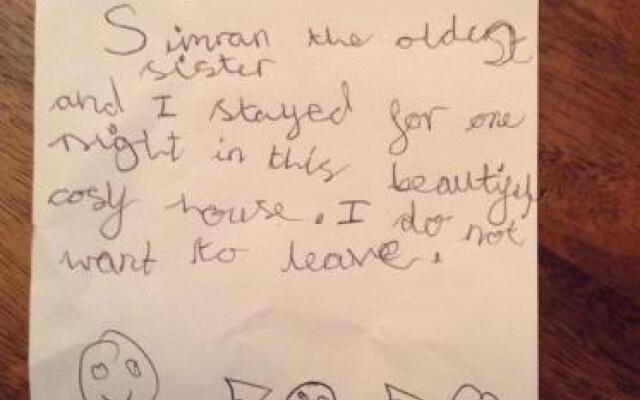 Simran the oldest
sister
and I stayed for one
night in this beautiful
cosy house. I do not
want to leave.